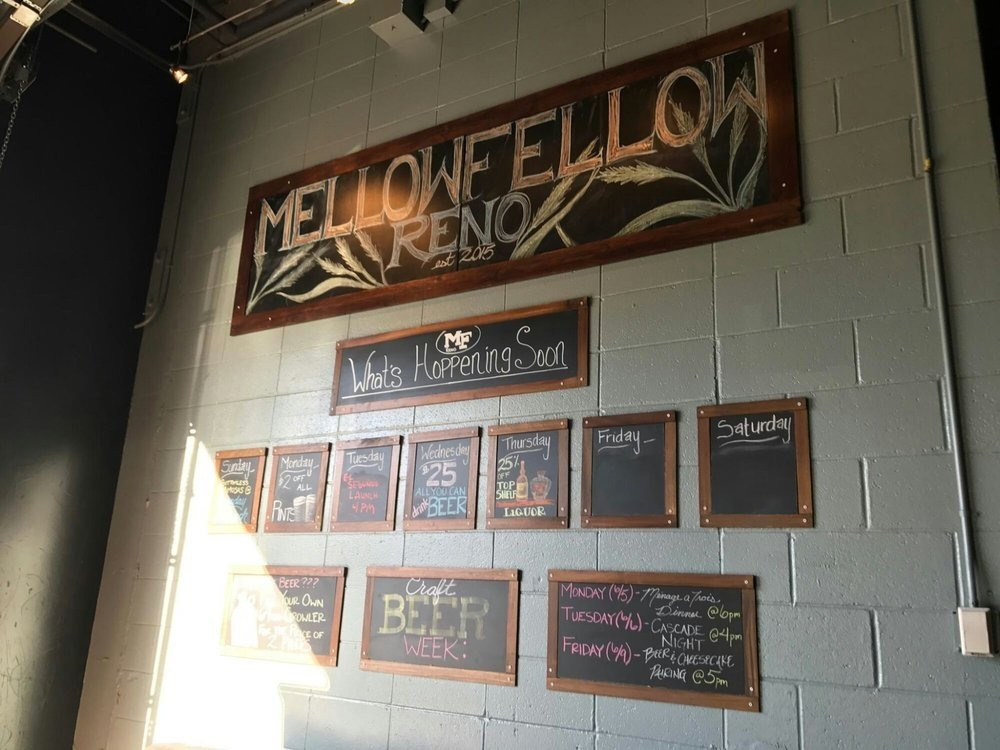 MELLOWFELLOW
RENO
est 2015
MF
What's Hoppening Soon
Sunday
Monday
$2 OFF
ALL
PINTS
Tuesday
LAUNCH
4 PM
Wednesday
$25
ALL YOU CAN
drink BEER
Thursday
25%
OFF
TOP
SHELF
LIQUOR
Friday
Saturday
BEER???
YOUR OWN
OF
Craft
BEER
WEEK:
MONDAY (6/5) - Menage a Trois
Dinner @6pm
TUESDAY (6/6) - CASCADE
NIGHT @4pm
FRIDAY (6/9) - BEER & CHEESECAKE
PAIRING @5pm